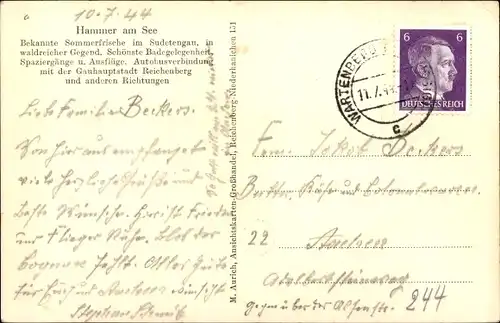 10.7.44
Hammer am See
Bekannte Sommerfrische im Sudetengau, in
waldreicher Gegend. Schönste Badegelegenheit,
Spaziergänge u. Ausflüge. Autobusverbindung
mit der Gauhauptstadt Reichenberg
und anderen Richtungen
Liebe Familie Beckers.
Von hier aus empfangen
viele herzliche Grüße und
beste Wünsche. Hier ist Frieden
und Flieger Ruhe. Blos der
Cognac fehlt. Alles Gute
für Euch und Aachen wünscht
Stephan
M. Aurich, Ansichtskarten-Großhandel, Reichenberg-Niederhanichen 151
WARTENBERG
11.7.44
c
6 6
DEUTSCHES REICH
Fam. Jakob Beckers
Butter, Käse und
22 Aachen
Adalbertsteinweg
244
gegenüber der